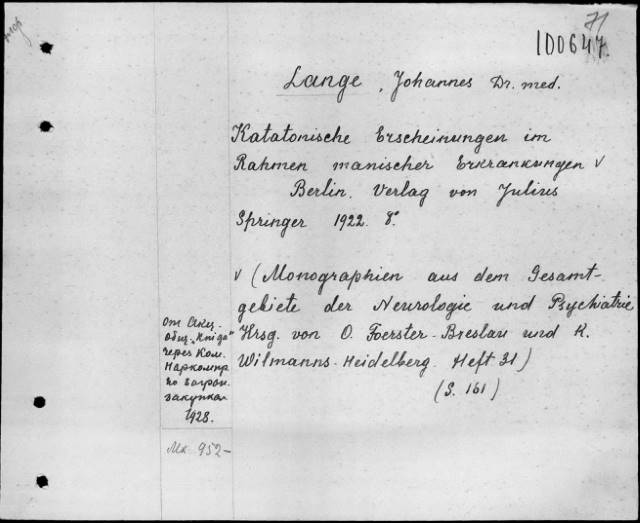 71
1D0647
Lange, Johannes Dr. med.
Katatonische Erscheinungen im
Rahmen manischer Erkrankungen v
Berlin. Verlag von Julius
Springer 1922. 8°.
v (Monographien aus dem Gesamt-
gebiete der Neurologie und Psychiatrie
Hrsg. von O. Foerster-Breslau und K.
Wilmanns-Heidelberg. Heft 31)
(S. 161)
От Акц.
Общ. „Книга"
через Ком.
Наркомпр
по загран.
закупкам
1928.
Мк 952-